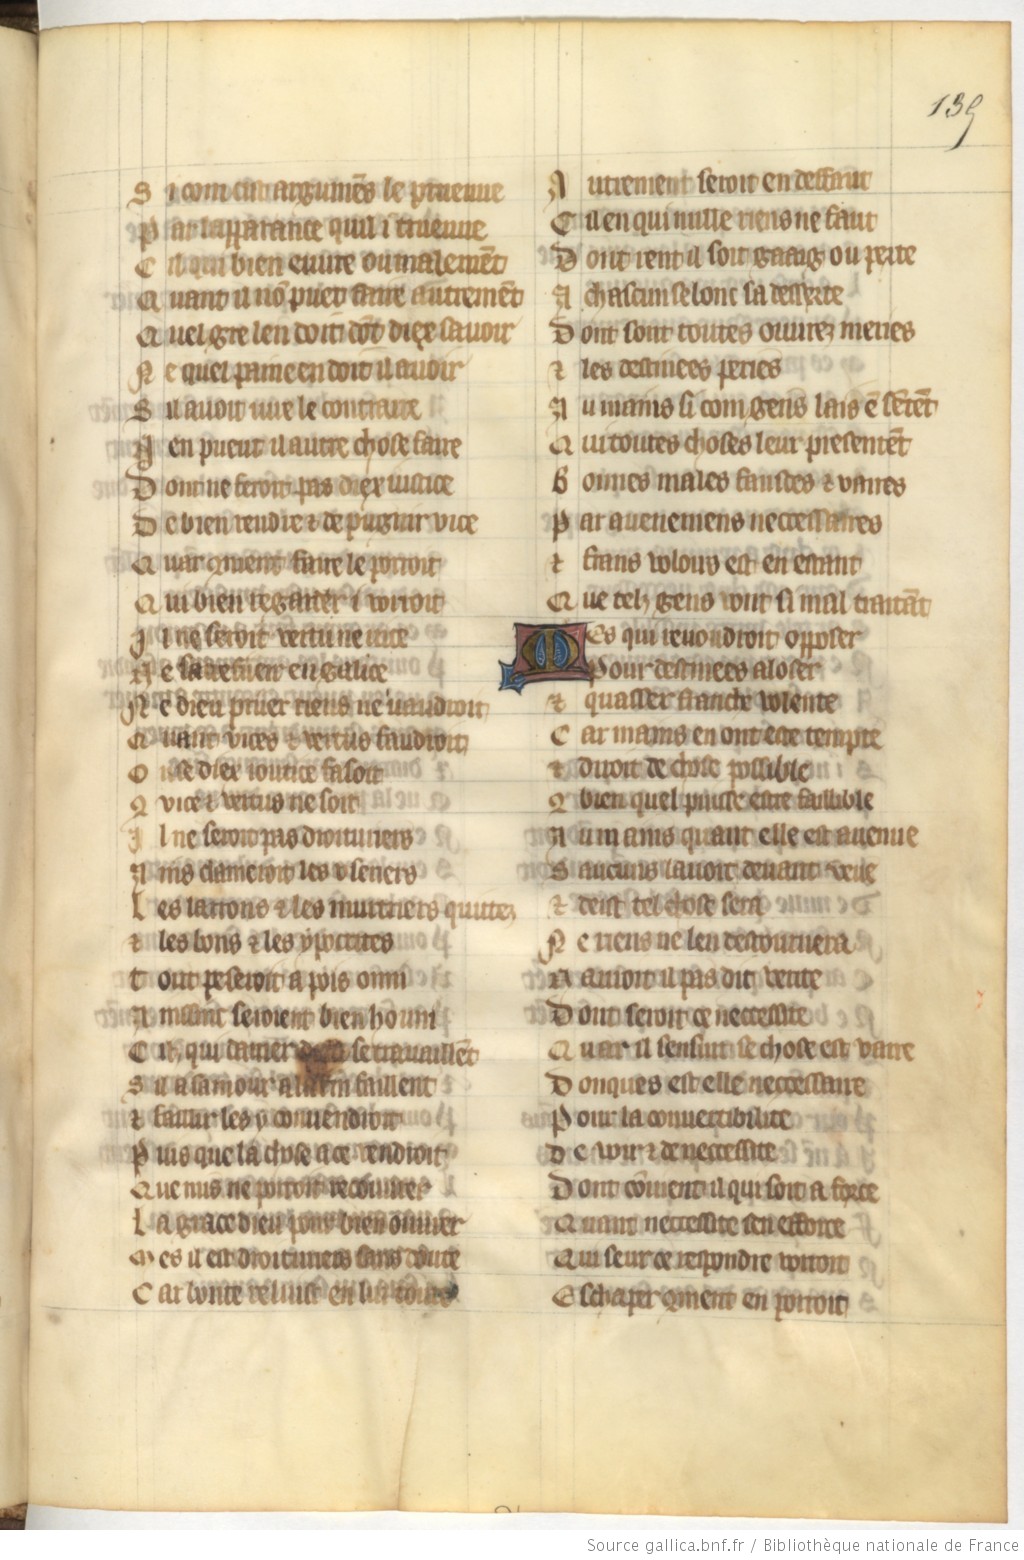 139
S i com cu argumẽs le prueuue
P ar lapparance quil i trueuue
C il qui bien euure ou malemẽt
Q uant il nõ puet faire autremẽt
Q uel gre len doit dõt diex sauoir
N e quel paine en doit il auoir
S il auoit iure le contraire
N en pueut il autre chose faire
D ont ne feroit pas diex iustice
D e bien rendre et de pugnir vice
Q uar 9ment faire le porroit
Q ui bien regarder i vorroit
I l ne seroit vertu ne vice
N e sacrefier en galice
N e dieu prier riens ne uaudroit
Q uant vices et vertus faudroit
O u se diex ioustice fasoit
9 vice et vertus ne soit
I l ne seroit pas droituriers
A ins clameroit les vseriers
L es larrons et les murtriers quittez
et les bons et les ypocrites
T out peseroit a pois onni
A insint seroient bien honni
C il qui damer dieu se travaillẽt
S il a samour a la fin faillent
et faillir les y couuendroit
P uis que la chose a ce vendroit
Q ue nus ne porroit recouurer
L a grace dieu pour bien ouurer
M es il est droituriers sans doute
C ar bonte reluist en lui toute
A utrement seroit en deffaut
C il en qui nulle riens ne faut
D ont rent il soit gaaig ou perte
A chascun selonc sa desserte
D ont sont toutes ouurez meries
et les destinees peries
A u mains si com gens lais ẽ sẽtẽt
Q ui toutes choses leur presentẽt
B onnes males fausses et vaires
P ar auenemens neccessaires
et frans voloirs est en estant
Q ue telz gens vont si mal traitãt
M es qui reuondroit opposer
Pour destinees aloser
et quasser franche volente
C ar mains en ont este tempte
et diroit de chose possible
9 bien quel puisse estre faillible
A u mains quant elle est auenue
S aucuns lauoit deuant veue
et deist tel chose sera
N e riens ne len destournera
N auroit il pas dit verite
D ont seroit ce neccessite
Q uar il sensuit se chose est vaire
D onques est elle neccessaire
P our la conuertibilite
D e voir et de neccessite
D ont cõuent il qui soit a force
Q uant neccessite sen efforce
Q ui seur ce respondre vorroit
E schaper 9ment en porroit
Source gallica.bnf.fr / Bibliothèque nationale de France